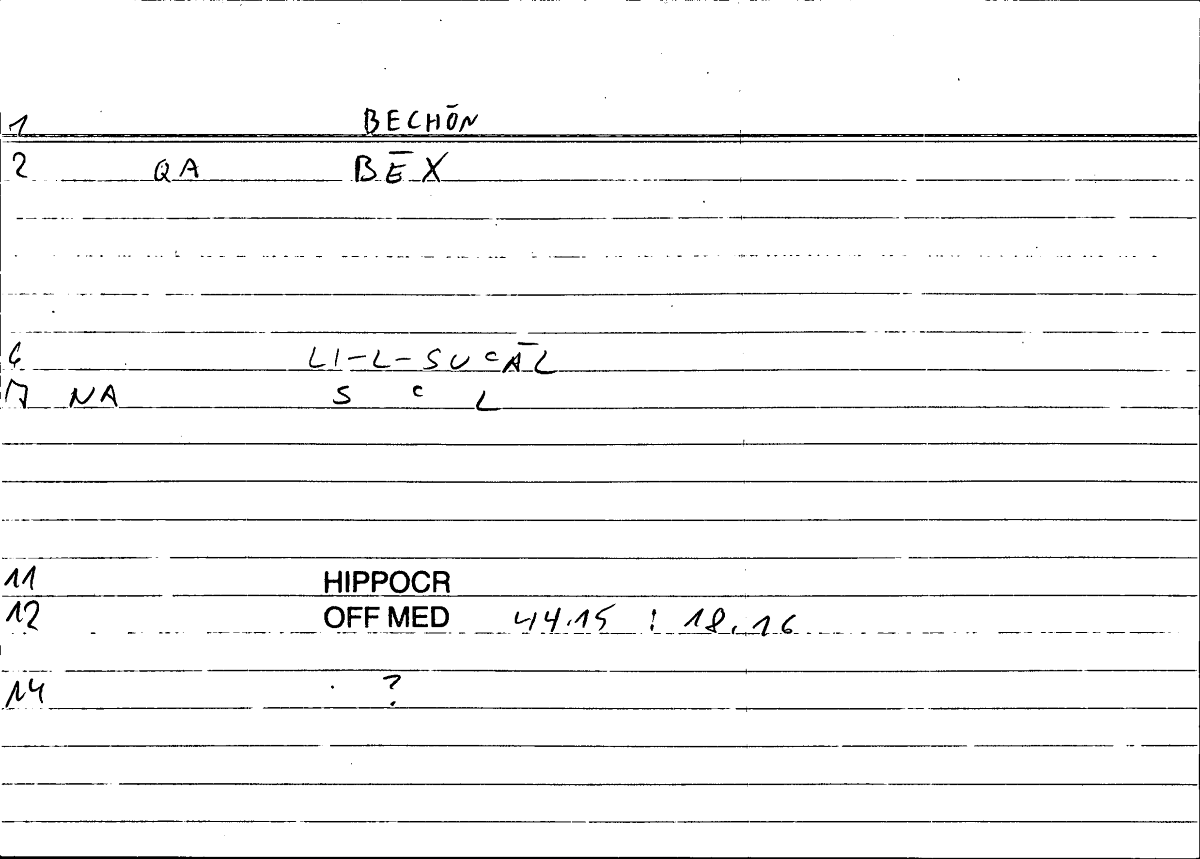 1 BECHŌN
2 QA BĒX
6 LI-L-SUᶜĀL
7 NA S ᶜ L
11 HIPPOCR
12 OFF MED 44.15 : 18.16
14 ?